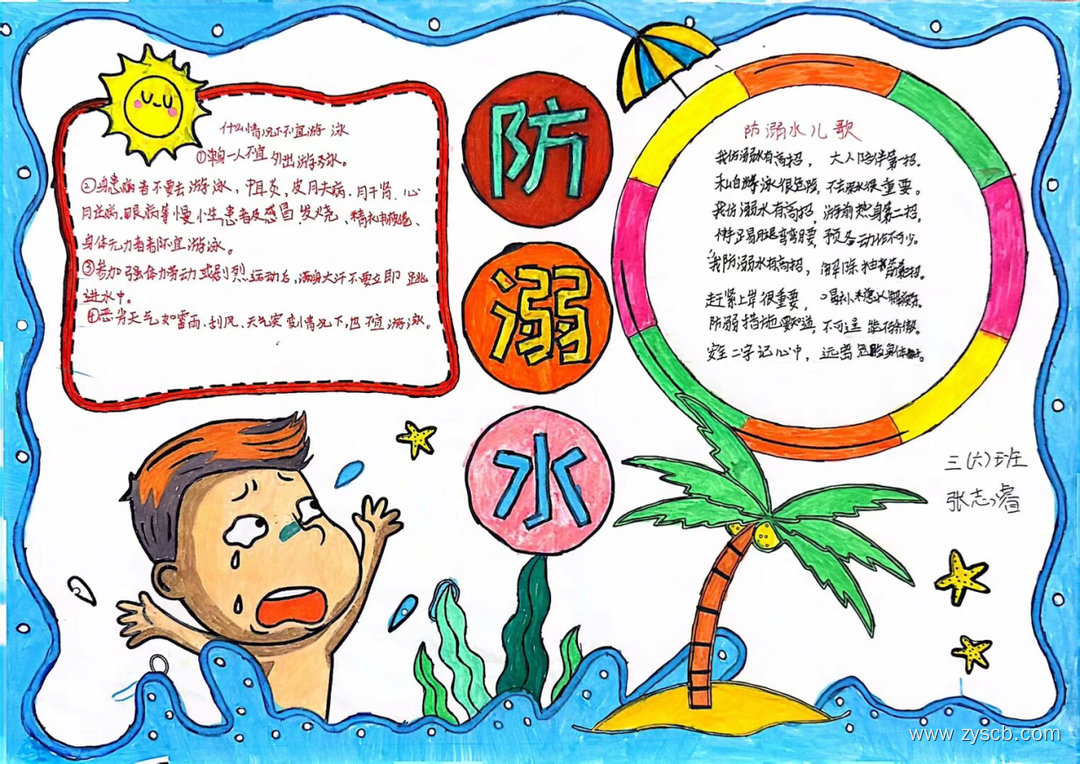 防
溺
水
什么情况下不宜游泳
①单独一人不宜外出游泳。
②身患病者不要去游泳,中耳炎,皮肤病,肝肾.心
脏病,眼病等慢性患者及感冒发烧、精神疲倦、
身体无力者都不宜游泳。
③参加强体力劳动或剧烈运动后,满身大汗不要立即跳
进水中。
④恶劣天气如雷雨、刮风、天气突变情况下,也不宜游泳。
防溺水儿歌
我防溺水有高招, 大人陪伴第一招.
私自游泳很危险, 不去深水很重要。
我防溺水有高招, 游前热身第二招,
预备动作不可少。
我防溺水有高招,
赶紧上岸很重要,
防溺措施要知道, 不可逞能
安全二字记心中, 远离危险身体
三(六)班
张志睿
www.zyscb.com